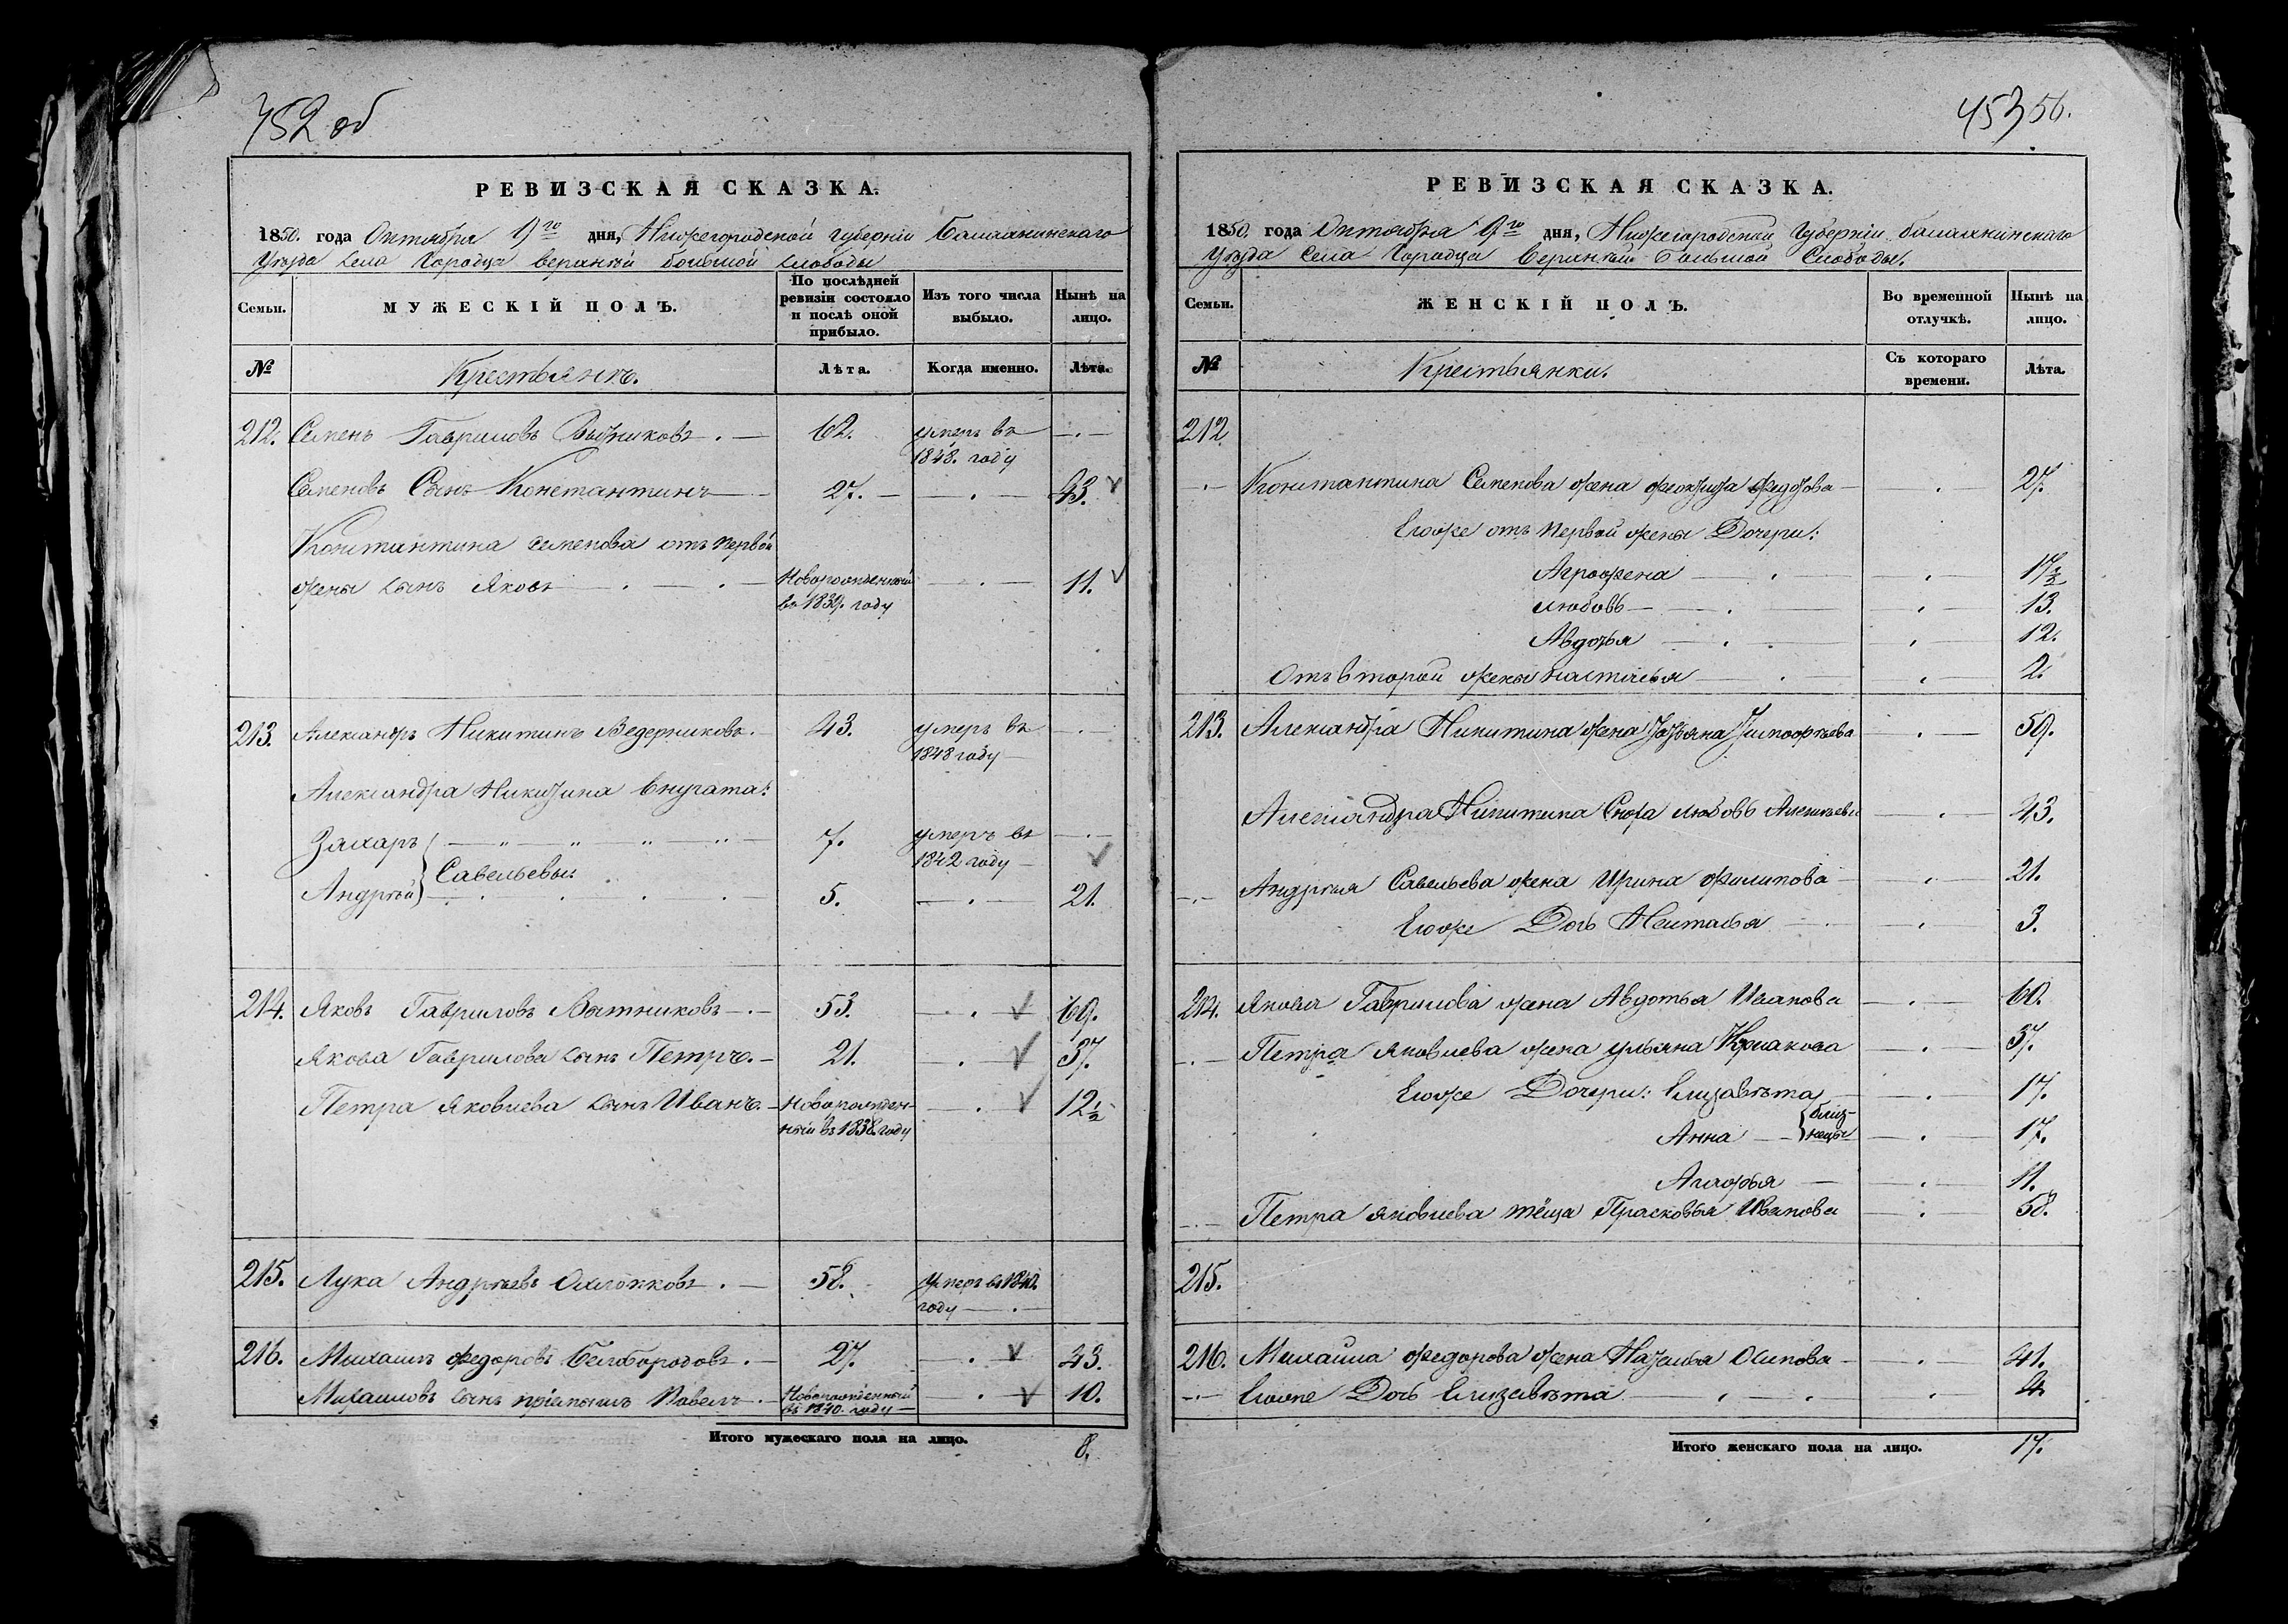 452 об
РЕВИЗСКАЯ СКАЗКА.
1850. года Октября 9го дня, Нижегородской губерніи Балахнинскаго
Уѣзда села Городца верхнѣй большой слободы
Семьи. МУЖЕСКІЙ ПОЛЪ. По послѣдней ревизіи состояло и послѣ оной прибыло. Изъ того числа выбыло. Нынѣ на лицо.
№ Крестьянъ. Лѣта. Когда именно. Лѣта.
212. Семенъ Гавриловъ 62. умеръ въ
1848. году
Семеновъ Сынъ Константинъ 27. 43.
Константина семенова отъ первой
жены сынъ Яковъ Новорожденный 11.
въ 1839. году
213. Александръ Никитинъ Ведерниковъ. 43. умеръ въ
1848 году
Александра Никитина внучата:
Захаръ 7. умеръ въ
1842 году
Савельевы.
Андрѣй 5. 21.
214. Яковъ Гавриловъ Вятниковъ 53. 69.
Якова Гаврилова сынъ Петръ. 21. 37.
Петра Яковлева сынъ Иванъ. Новорожден- 12½
ный въ 1838. году
215. Лука Андрѣевъ 58. умеръ въ 1840.
году
216. Михаилъ Федоровъ Белобородовъ. 27. 43.
Михаиловъ сынъ пріемышъ Павелъ Новорожденный 10.
въ 1840. году
Итого мужескаго пола на лицо. 8.
453 56.
РЕВИЗСКАЯ СКАЗКА.
1850 года Октября 9го дня, Нижегородской Губерніи балахнинскаго
Уѣзда Села Городца Верхнѣй Большой Слободы.
Семьи. ЖЕНСКІЙ ПОЛЪ. Во временной отлучкѣ. Нынѣ на лицо.
№ Крестьянки. Съ котораго времени. Лѣта.
212
Константина Семенова жена Федорова 27.
Егоже отъ первой жены Дочери:
Аграфена 17½
любовь 13.
Авдотья 12.
Отъ второй жены настасья 2.
213. Александра Никитина жена Татьяна Тимофѣева 59.
Александра Никитина Сноха любовь Алексѣева 43.
Андрѣя Савельева жена Ирина Филипова 21.
Егоже Дочь Настасья 3.
214. Якова Гаврилова жена Авдотья Иванова 60.
Петра Яковлева жена ульяна 37.
Егоже Дочери: Елизавѣта 17.
близ-
нецы
Анна 17.
Агафья 11.
Петра яковлева тёща Прасковья Иванова 58.
215.
216. Михаила Федорова жена Наталья Осипова 41.
Егоже Дочь Елизавѣта 4.
Итого женскаго пола на лицо. 17.